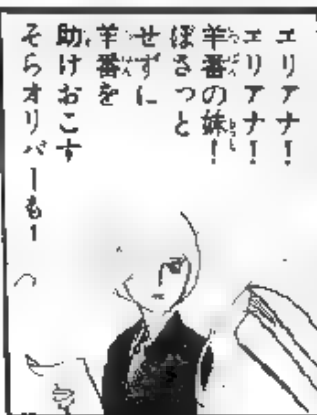 エリアナ!
エリアナ!
羊番の妹!
ぼさっと
せずに
羊番を
助けおこす
そらオリバーも1